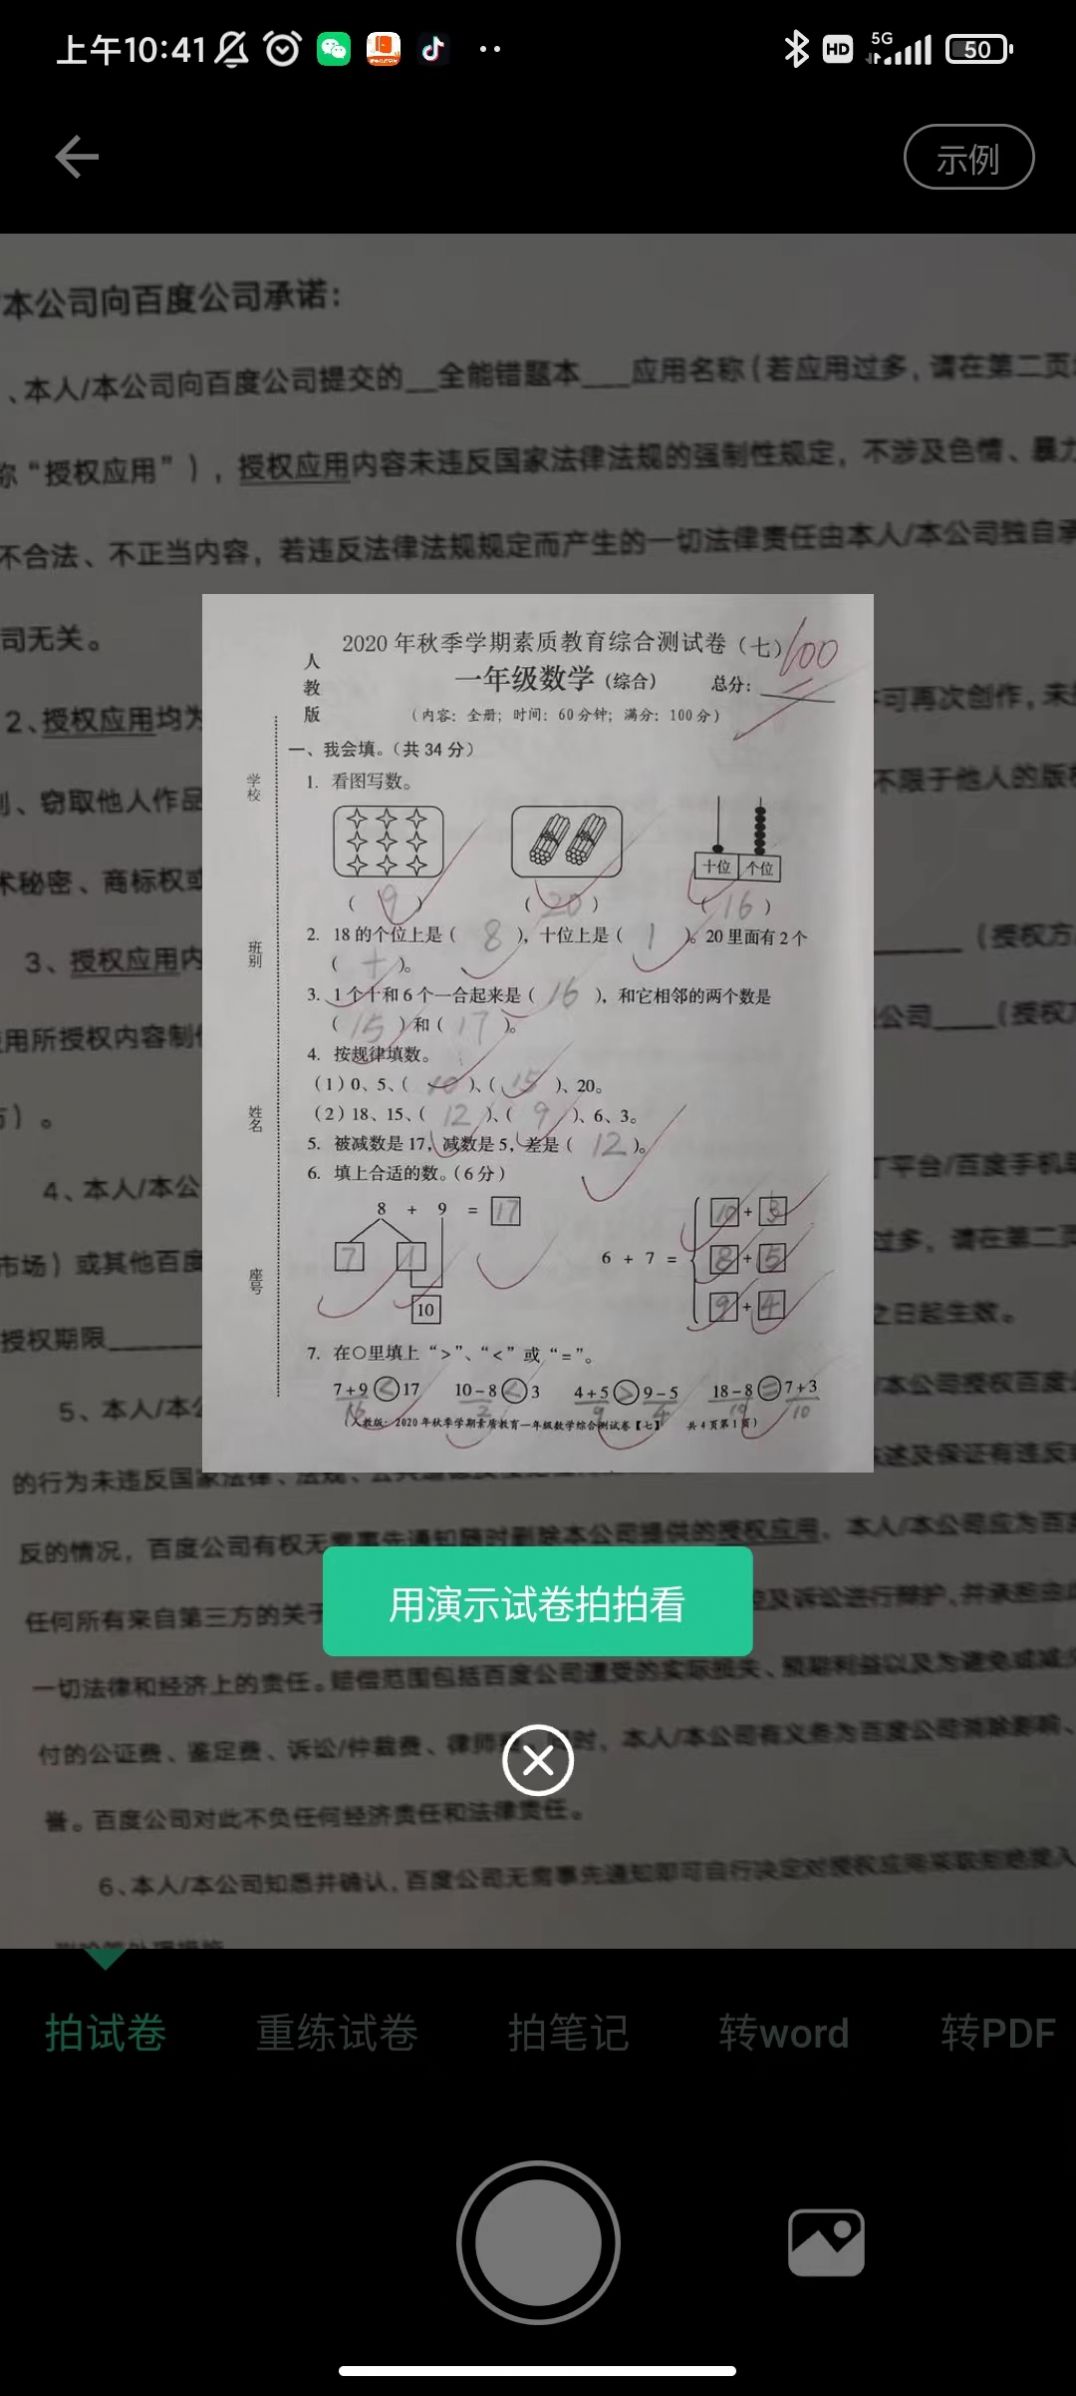 上午10:41
HD 5G 50
示例
本公司向百度公司承诺：
、本人/本公司向百度公司提交的__全能错题本___应用名称（若应用过多，请在第二页
称“授权应用”），授权应用内容未违反国家法律法规的强制性规定，不涉及色情、暴力
不合法、不正当内容，若违反法律法规规定而产生的一切法律责任由本人/本公司独自承
司无关。
2、授权应用均为
可再次创作，未
、窃取他人作品
不限于他人的版
术秘密、商标权或
3、授权应用内
（授权方
用所授权内容制
公司____（授权
）。
4、本人/本公
平台/百度手机助
市场）或其他百度
过多，请在第二页
授权期限
之日起生效。
5、本人/本公
本公司授权百度
2020年秋季学期素质教育综合测试卷（七）
100
人教版
一年级数学（综合） 总分：
（内容：全册；时间：60分钟；满分：100分）
学校
班别
姓名
座号
一、我会填。（共34分）
1. 看图写数。
十位 个位
（ 9 ） （ 20 ） （ 16 ）
2. 18的个位上是（ 8 ），十位上是（ 1 ）。20里面有2个
（ 十 ）。
3. 1个十和6个一合起来是（ 16 ），和它相邻的两个数是
（ 15 ）和（ 17 ）。
4. 按规律填数。
（1）0、5、（ 10 ）、（ 15 ）、20。
（2）18、15、（ 12 ）、（ 9 ）、6、3。
5. 被减数是17，减数是5，差是（ 12 ）。
6. 填上合适的数。（6分）
8 + 9 = 17
7 1
10
6 + 7 =
10 + 3
8 + 5
9 + 4
7. 在○里填上“>”、“<”或“=”。
7+9<17 10-8<3 4+5>9-5 18-8=7+3
16 2 9 4 10 10
人教版：2020年秋季学期素质教育一年级数学综合测试卷【七】 共4页第1页）
的行为未违反国家法律、法规、
述及保证有违反
反的情况，百度公司有权无需事先通知随时删除本公司提供的授权应用。本人/本公司应为百
任何所有来自第三方的关于
及诉讼进行辩护，并承担由此
用演示试卷拍拍看
一切法律和经济上的责任。赔偿范围包括百度公司遭受的实际损失、预期利益以及为避免或减
付的公证费、鉴定费、诉讼/仲裁费、律师
时，本人/本公司有义务为百度公司消除影响、
誉。百度公司对此不负任何经济责任和法律责任。
6、本人/本公司知悉并确认，百度公司无需事先通知即可自行决定对授权应用采取拒绝接入
拍试卷 重练试卷 拍笔记 转word 转PDF